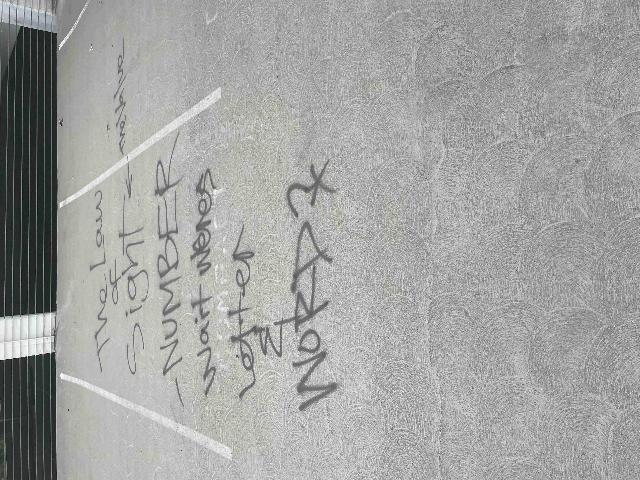 The Law
of
Sight ← maybe.
- NUMBER
wait weres
Letter
N
WORD?